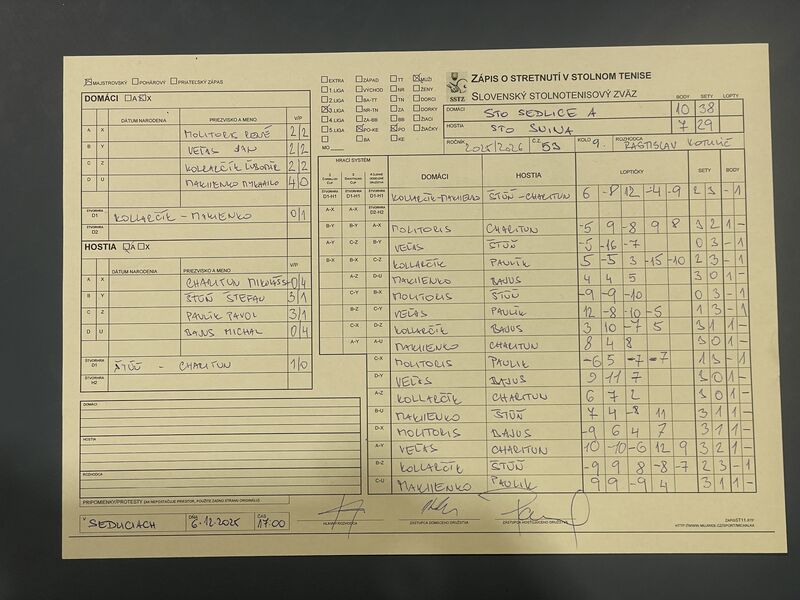 MAJSTROVSKÝ POHÁROVÝ PRIATEĽSKÝ ZÁPAS
DOMÁCI A X
DÁTUM NARODENIA PRIEZVISKO A MENO V/P
A X MOLITORIS RENÉ 2/2
B Y VEĽAS JÁN 2/2
C Z KOLLARČÍK ĽUBOMÍR 2/2
D U MAKIIENKO MYKHAILO 4/0
ŠTVORHRA D1 KOLLARČÍK - MAKIIENKO 0/1
ŠTVORHRA D2
HOSTIA A X
DÁTUM NARODENIA PRIEZVISKO A MENO V/P
A X CHARITUN MIKULÁŠ 0/4
B Y ŠTÜŇ ŠTEFAN 3/1
C Z PAULÍK PAVOL 3/1
D U BAJUS MICHAL 0/4
ŠTVORHRA H1 ŠTÜŇ - CHARITUN 1/0
ŠTVORHRA H2
DOMÁCI
HOSTIA
ROZHODCA
PRIPOMIENKY/PROTESTY (AK NEPOSTAČUJE PRIESTOR, POUŽITE ZADNÚ STRANU ORIGINÁLU)
V SEDLICIACH DŇA 6.12.2025 ČAS 17:00
EXTRA ZÁPAD TT MUŽI
1.LIGA VÝCHOD NR ŽENY
2.LIGA BA-TT TN DORCI
3.LIGA NR-TN ZA DORKY
4.LIGA ZA-BB BB ŽIACI
5.LIGA PO-KE PO ŽIAČKY
BA KE
MO
SSTZ
ZÁPIS O STRETNUTÍ V STOLNOM TENISE
SLOVENSKÝ STOLNOTENISOVÝ ZVÄZ
BODY SETY LOPTY
DOMÁCI STO SEDLICE A 10 38
HOSTIA STO SVINA 7 29
ROČNÍK 2025/2026 ČZ 53 KOLO 9. ROZHODCA RASTISLAV
HRACÍ SYSTÉM DOMÁCI HOSTIA LOPTIČKY SETY BODY
ŠTVORHRA D1-H1 ŠTVORHRA D1-H1 ŠTVORHRA D1-H1 KOLLARČÍK-MAKIIENKO ŠTÜŇ-CHARITUN 6 -8 12 -4 -9 2 3 - 1
A-X A-X ŠTVORHRA D2-H2
B-Y B-Y A-X MOLITORIS CHARITUN -5 9 -8 9 8 3 2 1 -
A-Y C-Z B-Y VEĽAS ŠTÜŇ -5 -16 -7 0 3 - 1
B-X B-X C-Z KOLLARČÍK PAULÍK 5 -5 3 -15 -10 2 3 - 1
A-Z D-U MAKIIENKO BAJUS 4 4 5 3 0 1 -
C-Y B-X MOLITORIS ŠTÜŇ -9 -9 -10 0 3 - 1
B-Z C-Y VEĽAS PAULÍK 12 -8 -10 -5 1 3 - 1
C-X D-Z KOLLARČÍK BAJUS 3 10 -7 5 3 1 1 -
A-Y A-U MAKIIENKO CHARITUN 8 4 8 3 0 1 -
C-X MOLITORIS PAULIK -6 5 -7 -7 1 3 - 1
D-Y VEĽAS BAJUS 9 11 7 3 0 1 -
A-Z KOLLARČÍK CHARITUN 6 7 2 3 0 1 -
B-U MAKIIENKO ŠTÜŇ 7 4 -8 11 3 1 1 -
D-X MOLITORIS BAJUS -9 6 4 7 3 1 1 -
A-Y VEĽAS CHARITUN 10 -10 -6 12 9 3 2 1 -
B-Z KOLLARČÍK ŠTÜŇ -9 9 8 -8 -7 2 3 - 1
C-U MAKIIENKO PAULIK 9 9 -9 4 3 1 1 -
HLAVNÝ ROZHODCA ZÁSTUPCA DOMÁCEHO DRUŽSTVA ZÁSTUPCA HOSŤUJÚCEHO DRUŽSTVA